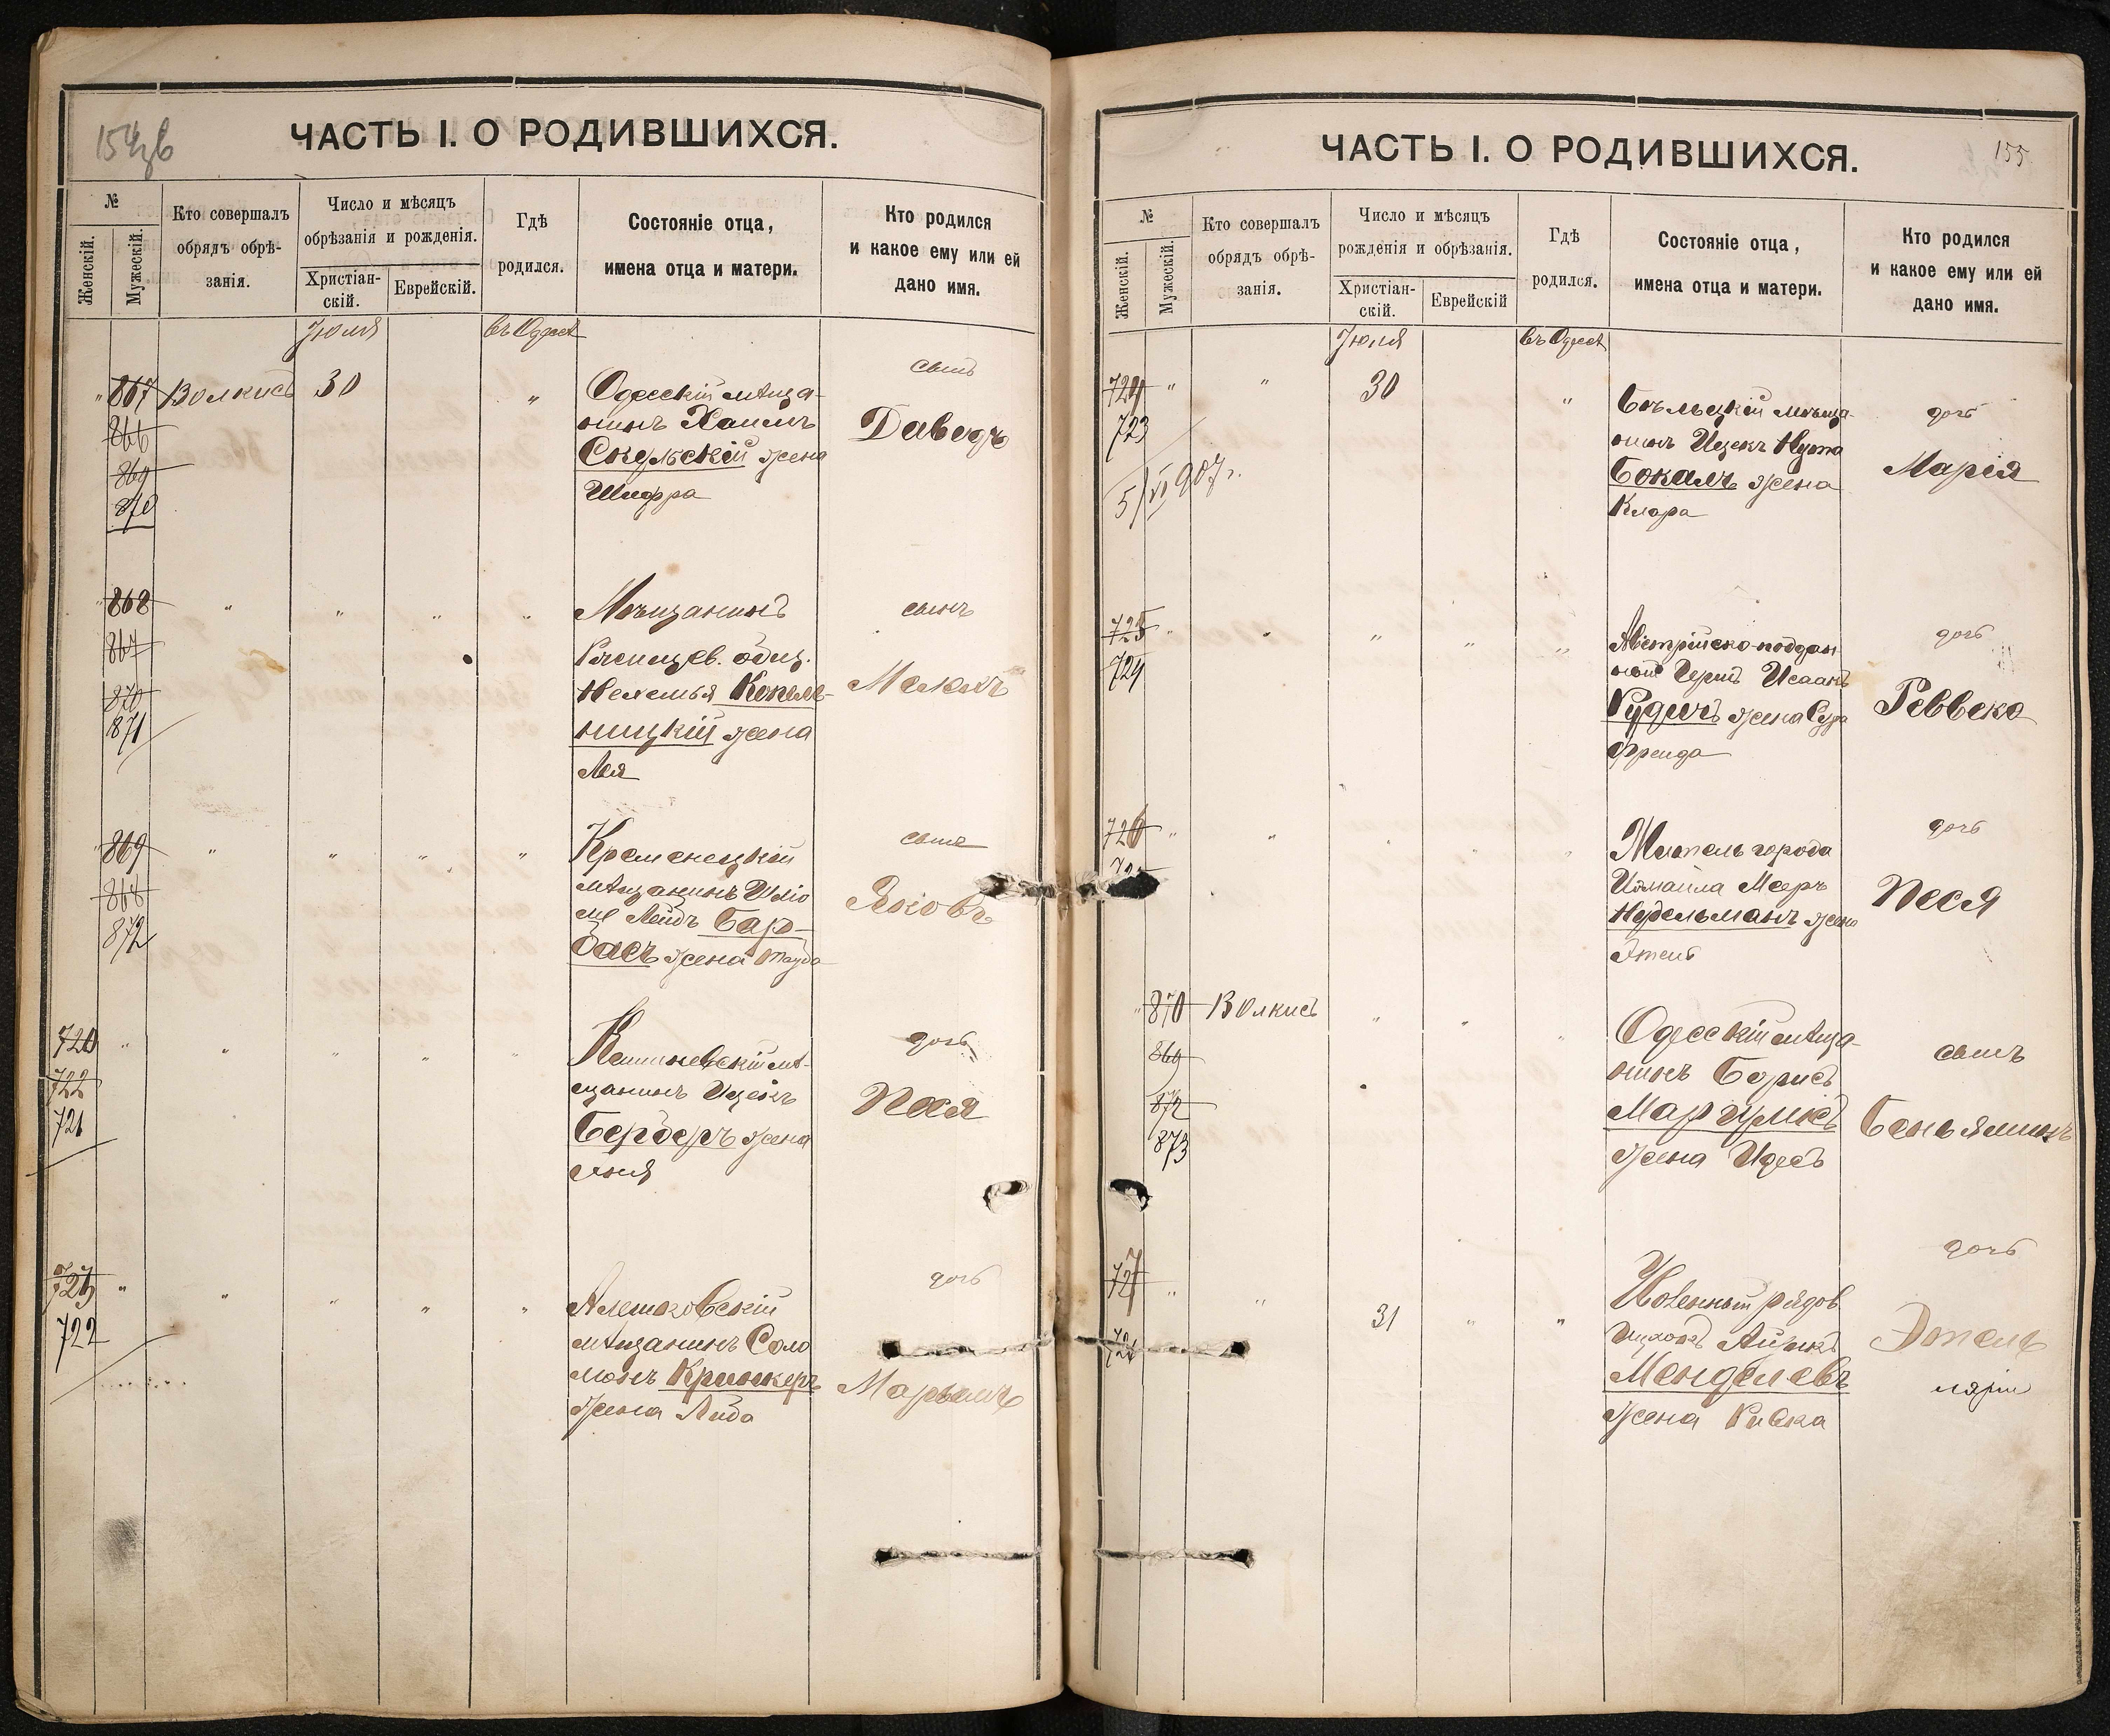 154 об
ЧАСТЬ I. О РОДИВШИХСЯ.
№
Женскій.
Мужескій.
Кто совершалъ
обрядъ обрѣ-
занія.
Число и мѣсяцъ
обрѣзанія и рожденія.
Христіан-
скій.
Еврейскій.
Гдѣ
родился.
Состояніе отца,
имена отца и матери.
Кто родился
и какое ему или ей
дано имя.
Іюля
въ Одессѣ
867
866
869
870
Волкисъ
30
"
Одесскій мѣща-
нинъ Хаимъ
Скульскій жена
Шифра
сынъ
Давидъ
868
867
870
871
" " " "
Мѣщанинъ
общ.
Нехемья Копель-
ницкій жена
Лея
сынъ
869
868
872
" " " "
Кременецкій
мѣщанинъ Шлío
ме Лейбъ Бар-
басъ жена Тауба
сынъ
Яковъ
720
722
721
" " " " "
Кишиневскій мѣ-
щанинъ Ицекъ
Берберъ жена
Хня
дочь
Песя
723
722
" " " " "
Алешковскій
мѣщанинъ Соло
монъ Кринкеръ
жена Люба
дочь
Марьямъ
155
ЧАСТЬ I. О РОДИВШИХСЯ.
№
Женскій.
Мужескій.
Кто совершалъ
обрядъ обрѣ-
занія.
Число и мѣсяцъ
рожденія и обрѣзанія.
Христіан-
скій.
Еврейскій
Гдѣ
родился.
Состояніе отца,
имена отца и матери.
Кто родился
и какое ему или ей
дано имя.
Іюля
въ Одессѣ
724
723
5/VI 907 г.
" "
30
"
Бѣльцкій мѣща-
нинъ Ицекъ Нута
Бокалъ жена
Клара
дочь
Марія
725
724
" " " " "
Австрійско-поддан-
ный Исаакъ
Рудичъ жена Сура
Фрейда
дочь
Реввека
726
" " " " "
Житель города
Измаила Мееръ
Нудельманъ жена
Этель
дочь
Песя
870
869
872
873
Волкисъ
" " "
Одесскій мѣща-
нинъ Борисъ
Маргулисъ
жена Идесъ
сынъ
Беньяминъ
727
" "
31
" "
рядов.
Менделевъ
жена Ривка
дочь
Этель